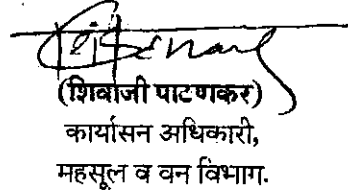 (शिवाजी पाटणकर)
कार्यासन अधिकारी,
महसूल व वन विभाग.